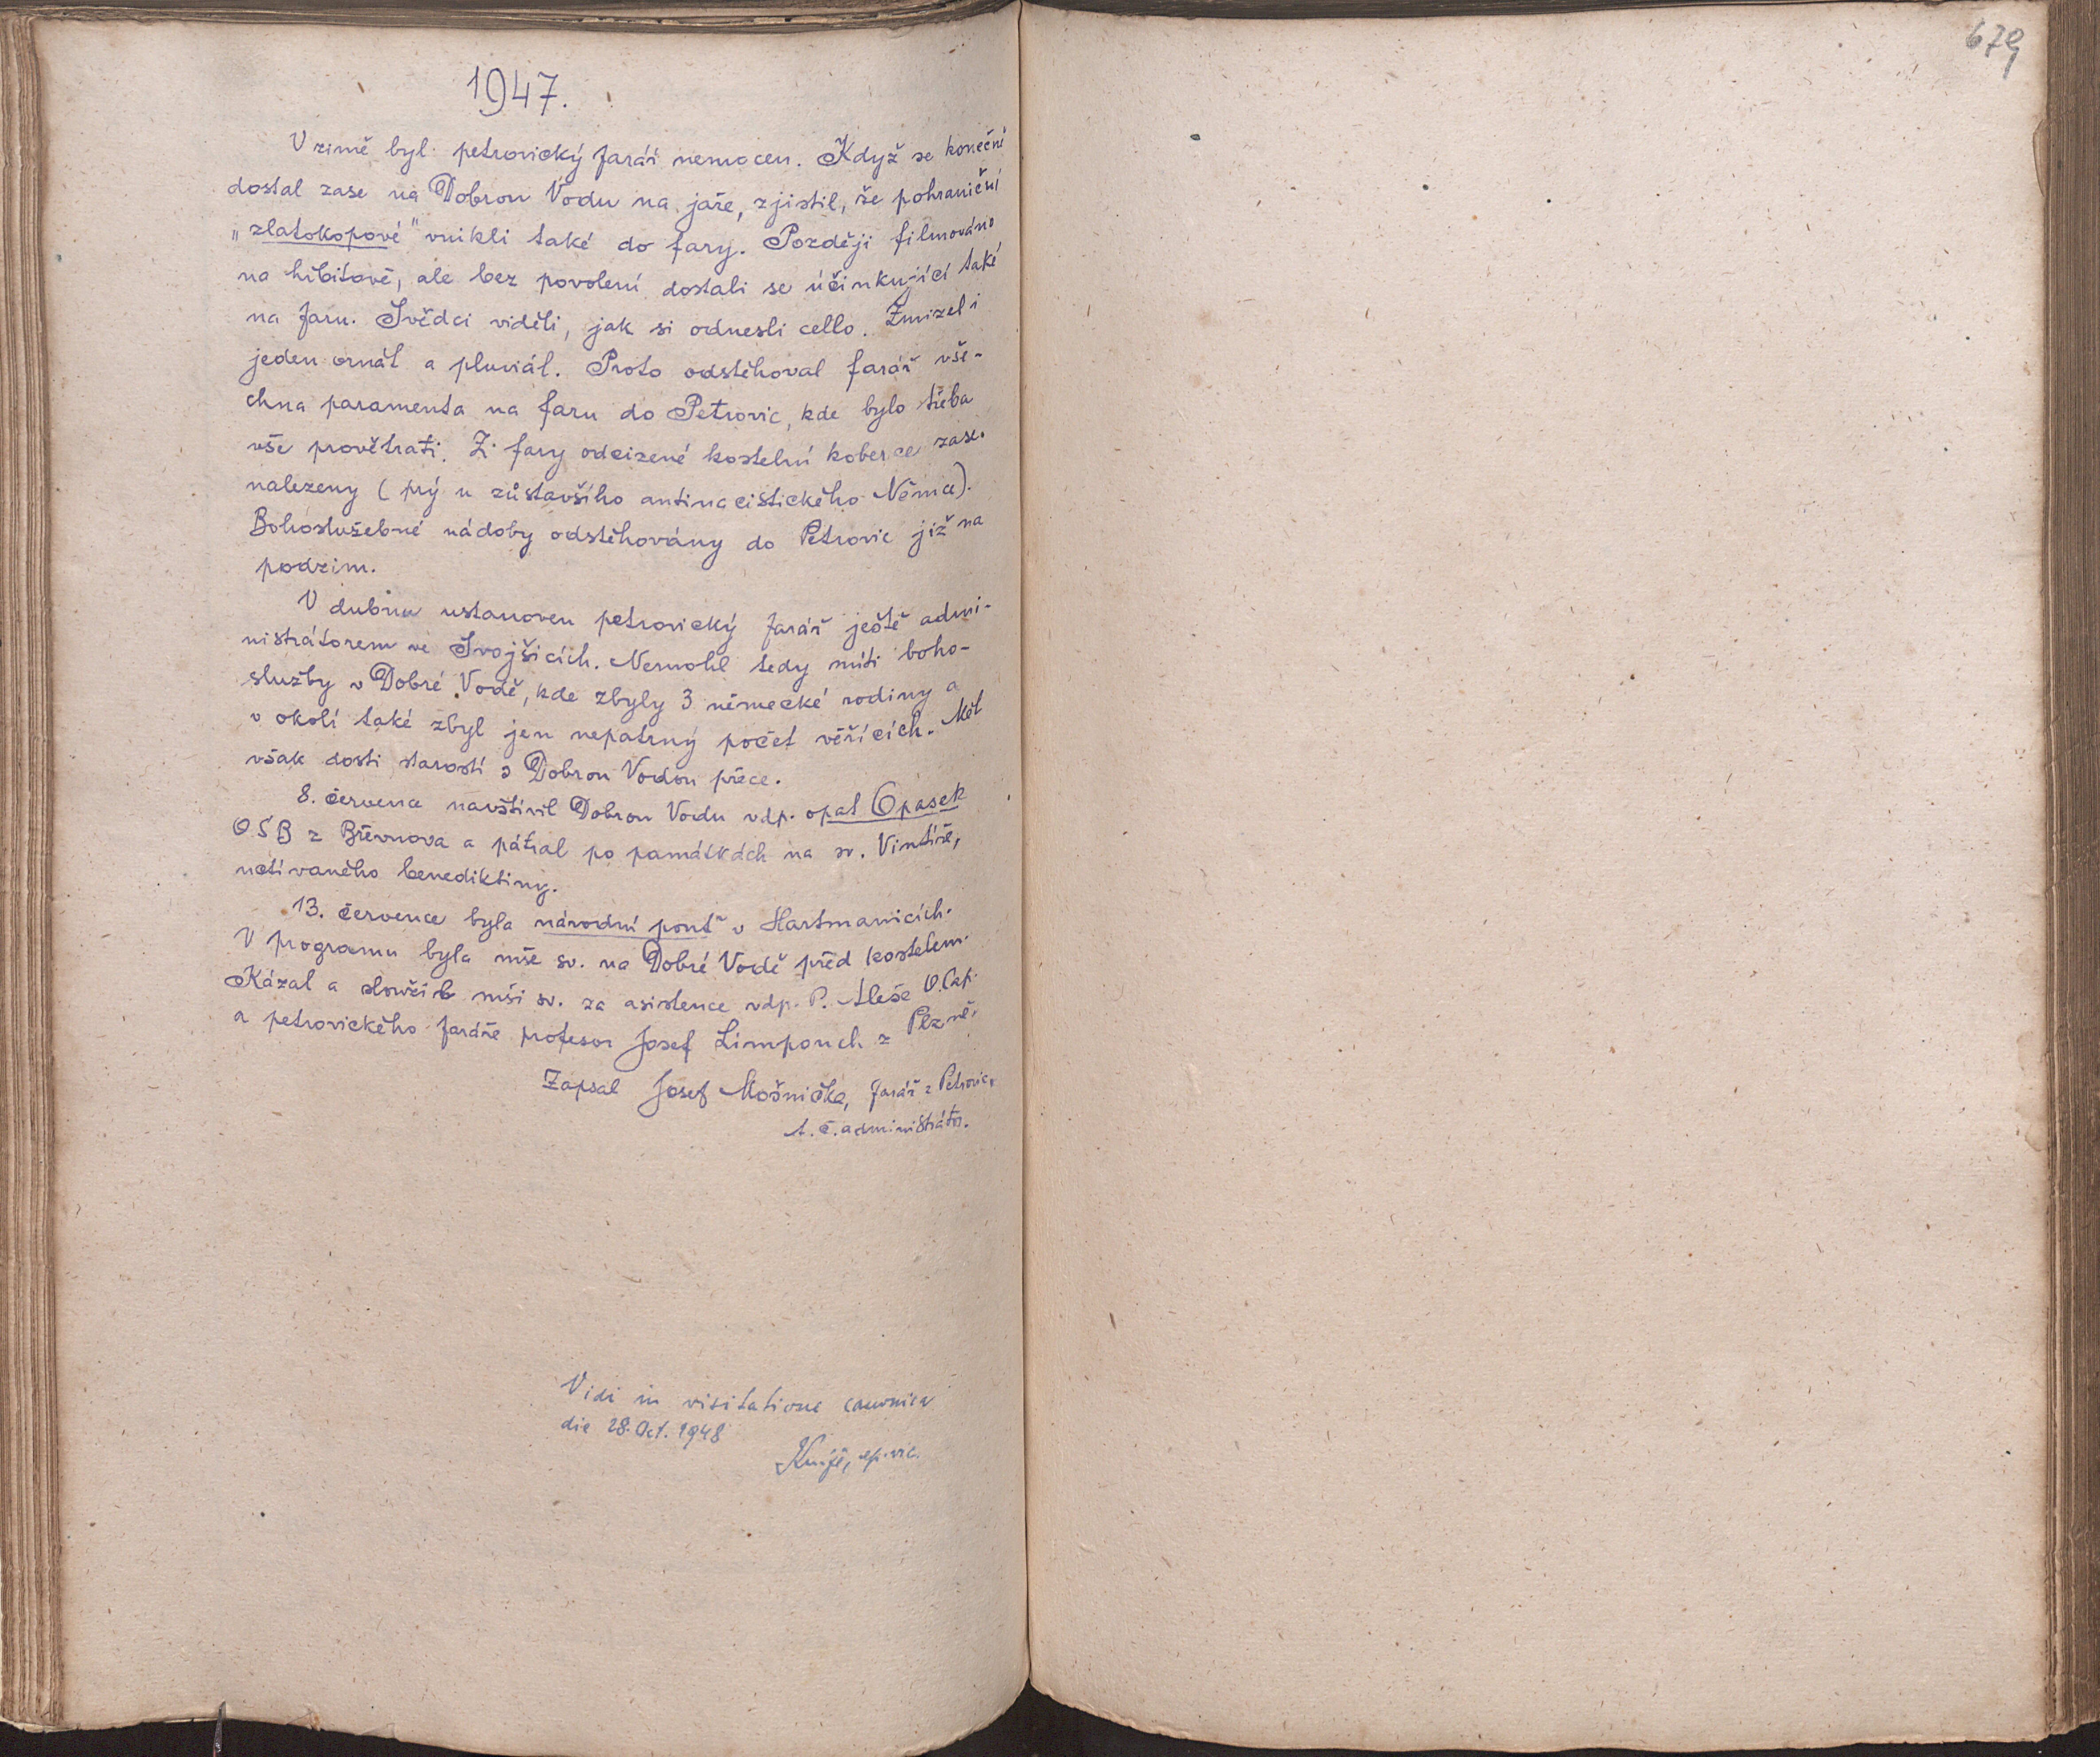 1947.
V zimě byl petrovický farář nemocen. Když se konečně
dostal zase na Dobrou Vodu na jaře, zjistil, že pohraniční
„zlatokopové" vnikli také do fary. Později filmováno
na hřbitově, ale bez povolení dostali se účinkující také
na faru. Svědci viděli, jak si odnesli cello. Zmizel i
jeden ornát a pluviál. Proto odstěhoval farář vše-
chna paramenta na faru do Petrovic, kde bylo třeba
vše provětrati. Z fary odcizené kostelní koberce zase
nalezeny (prý u zůstavšího antinacistického Němce).
Bohoslužebné nádoby odstěhovány do Petrovic již na
podzim.
V dubnu ustanoven petrovický farář ještě admi-
nistrátorem ve Svojšicích. Nemohl tedy míti boho-
služby v Dobré Vodě, kde zbyly 3 německé rodiny a
v okolí také zbyl jen nepatrný počet věřících. Měl
však dosti starostí s Dobrou Vodou přece.
8. července navštívil Dobrou Vodu vdp. opat Opasek
OSB z Břevnova a pátral po památkách na sv. Vintíře,
uctívaného benediktiny.
13. července byla národní pouť v Hartmanicích.
V programu byla mše sv. na Dobré Vodě před kostelem.
Kázal a sloužil mši sv. za asistence vdp. P. Aleše O.Cap.
a petrovického faráře profesor Josef Limpouch z Plzně.
Zapsal Josef Mošnička, farář z Petrovic,
t. č. administrátor.
Vidi in visitatione canonica
die 28. Oct. 1948
vic.
679